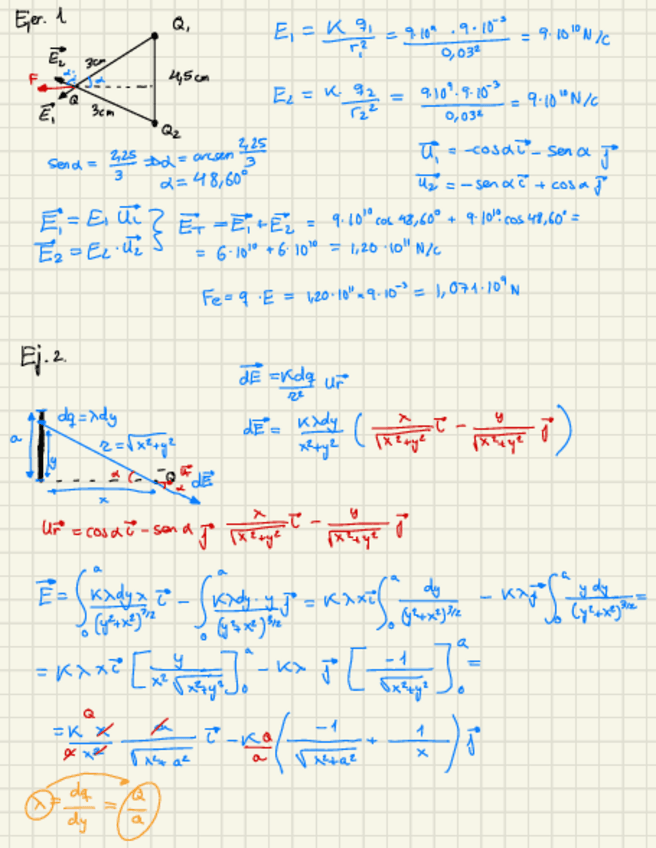 Ejer. 1
Q₁
E₂→
3cm
α α
4,5cm
F
Q
3cm
E₁→
Q₂
E₁ = K q₁/r₁² = 9·10⁹ · 9·10⁻³/0,03² = 9·10¹⁰ N/c
E₂ = K · q₂/r₂² = 9·10⁹·9·10⁻³/0,03² = 9·10¹⁰ N/c
sen α = 2,25/3 ⇒ α = arcsen 2,25/3
α = 48,60°
u₁→ = -cos α i→ - sen α j→
u₂→ = -sen α i→ + cos α j→
E₁→ = E₁ u₁→
E₂→ = E₂ · u₂→
} E_T→ = E₁→ + E₂→ = 9·10¹⁰ cos 48,60° + 9·10¹⁰·cos 48,60° =
= 6·10¹⁰ + 6·10¹⁰ = 1,20·10¹¹ N/c
Fe = q · E = 1,20·10¹¹ · 9·10⁻³ = 1,071·10⁹ N
Ej. 2.
dE→ = Kdq/r² ur→
dE→ = Kλdy/(x²+y²) ( x/√(x²+y²) i→ - y/√(x²+y²) j→ )
dq = λdy
a
y
r = √(x²+y²)
α
-Q
ur→
α
dE→
x
ur→ = cos α i→ - sen α j→ x/√(x²+y²) i→ - y/√(x²+y²) j→
E→ = ∫₀ᵃ Kλdy x/(y²+x²)^(3/2) i→ - ∫₀ᵃ Kλdy · y/(y²+x²)^(3/2) j→ = Kλx i→ ∫₀ᵃ dy/(y²+x²)^(3/2) - Kλ j→ ∫₀ᵃ y dy/(y²+x²)^(3/2) =
= Kλ x i→ [ y/(x² √(x²+y²)) ]₀ᵃ - Kλ j→ [ -1/√(x²+y²) ]₀ᵃ =
= K Q x/(a x²) a/√(x²+a²) i→ - K Q/a ( -1/√(x²+a²) + 1/x ) j→
λ = dq/dy = Q/a